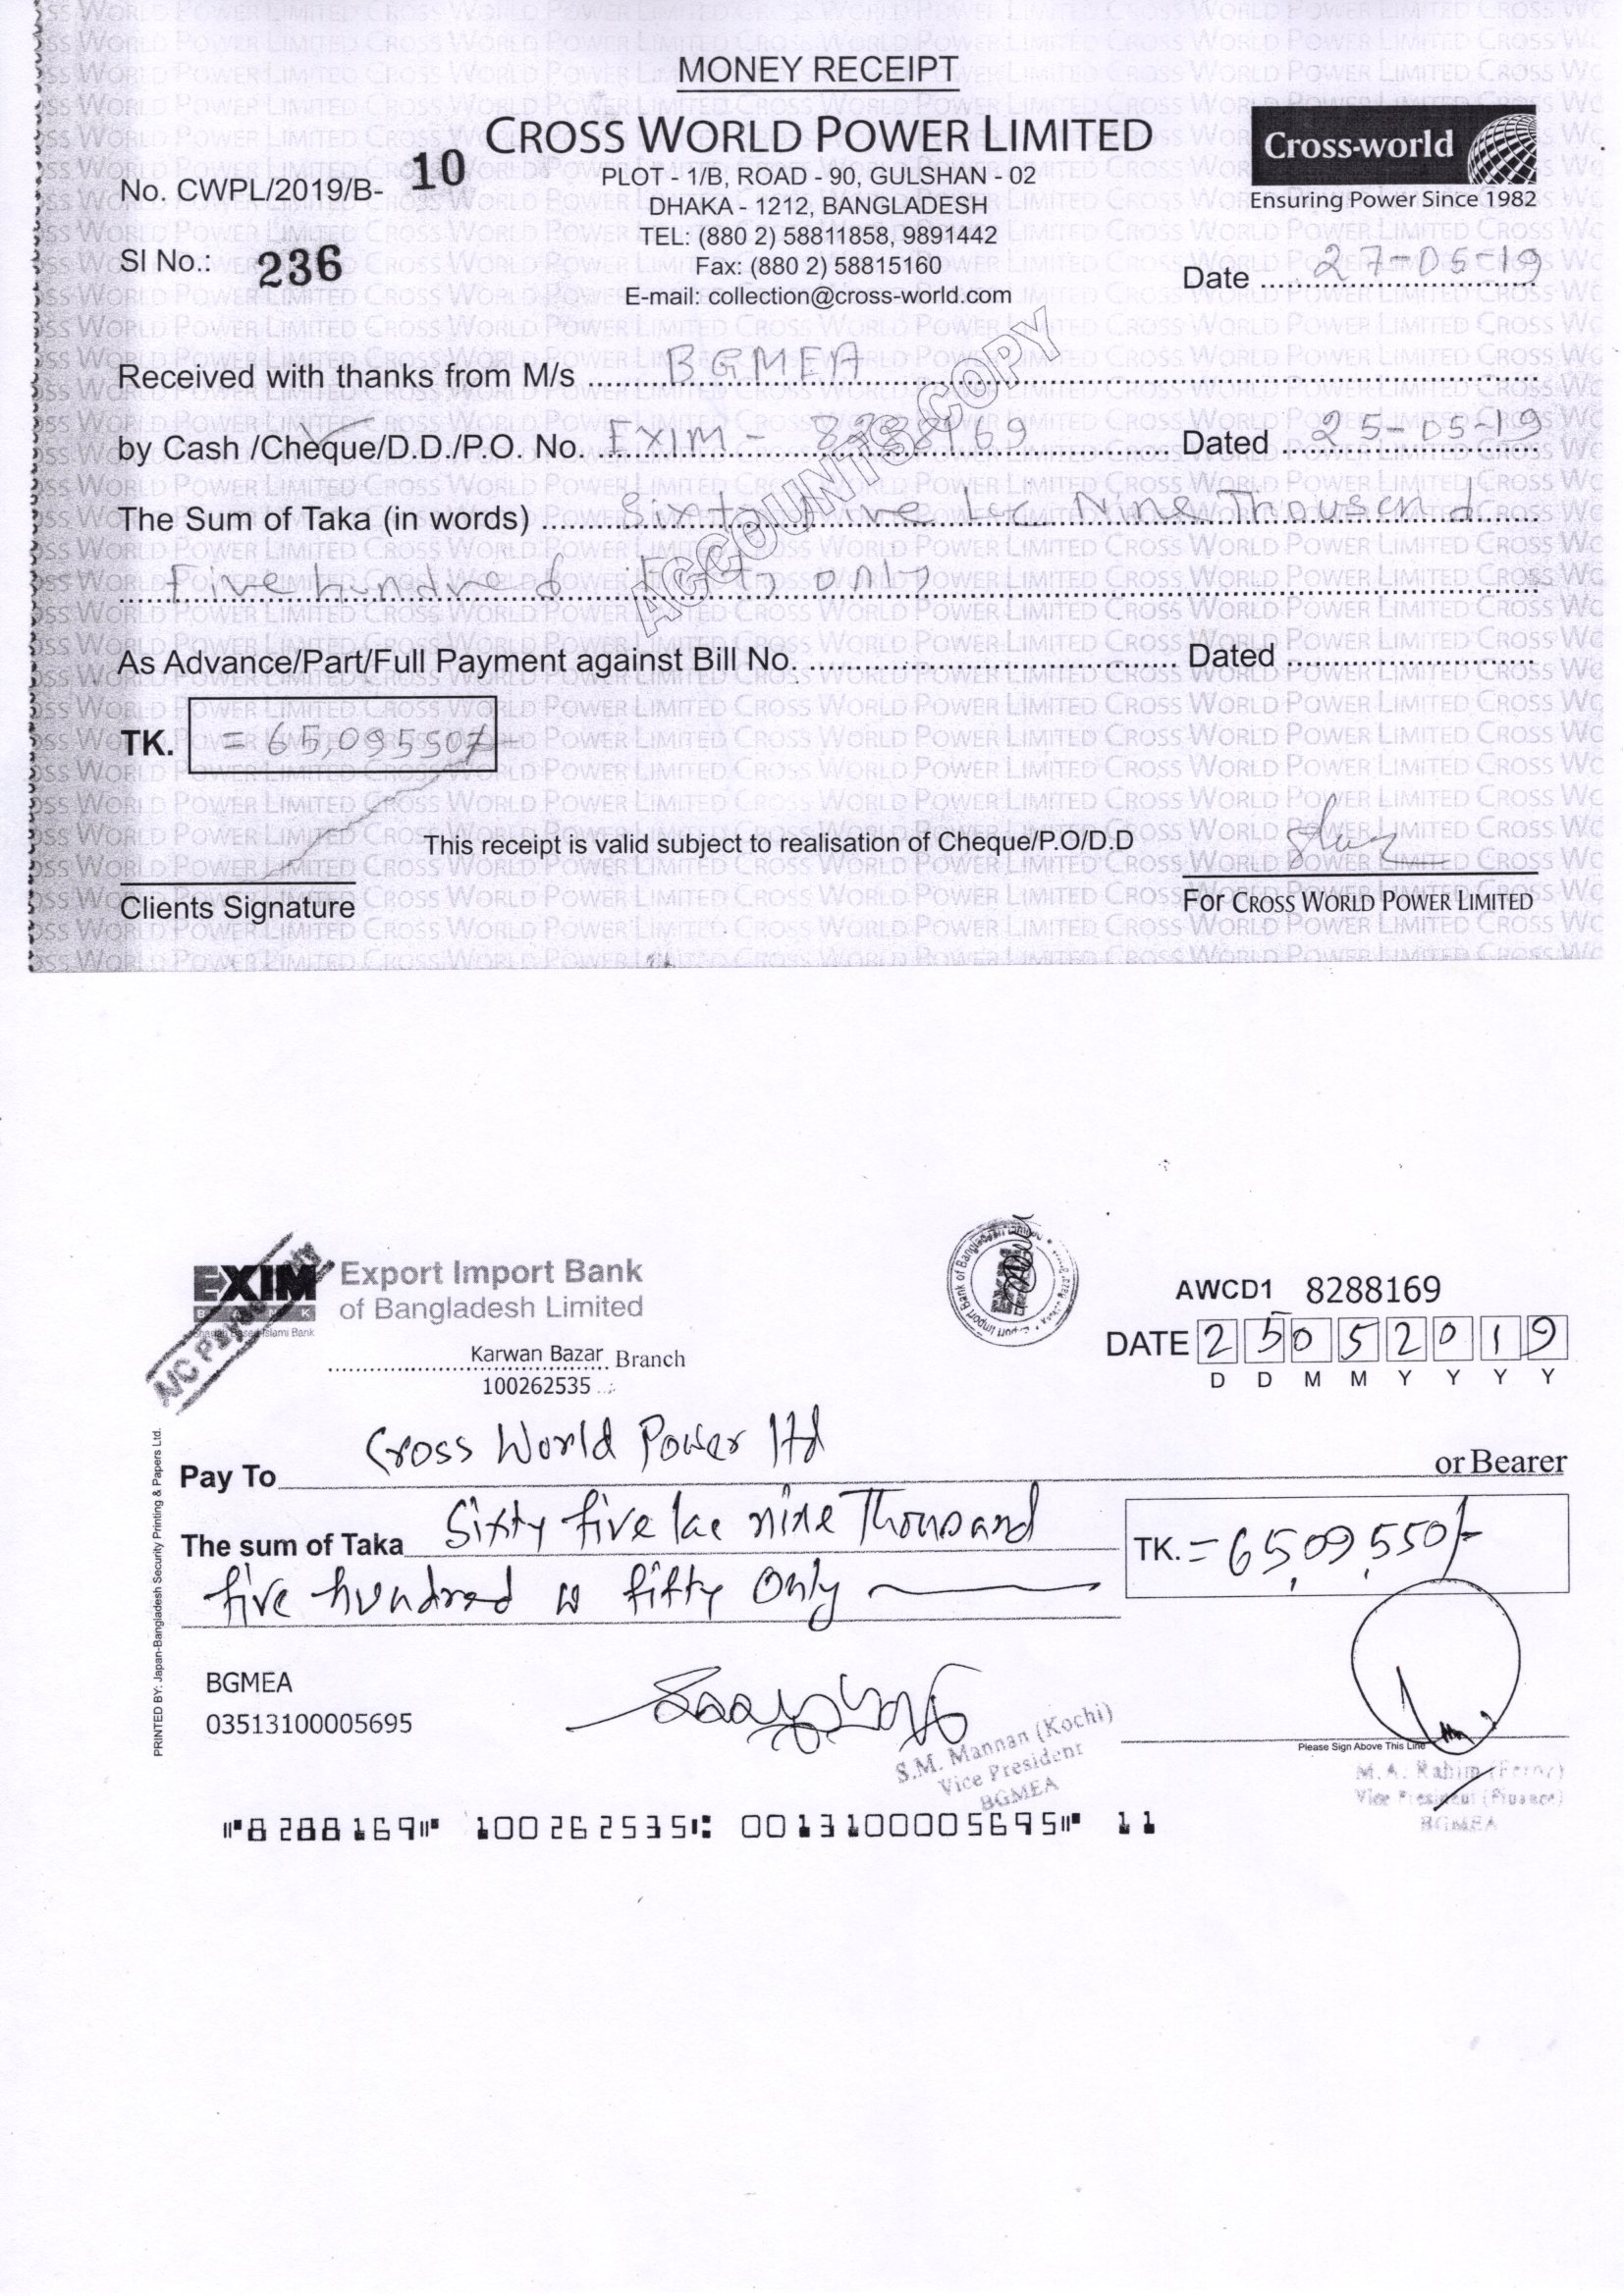 MONEY RECEIPT
CROSS WORLD POWER LIMITED
Cross-world
Ensuring Power Since 1982
No. CWPL/2019/B- 10
PLOT - 1/B, ROAD - 90, GULSHAN - 02
DHAKA - 1212, BANGLADESH
TEL: (880 2) 58811858, 9891442
Fax: (880 2) 58815160
E-mail: collection@cross-world.com
SI No.: 236
Date 27-05-19
Received with thanks from M/s BGMEA
by Cash /Cheque/D.D./P.O. No. EXIM - 8288169 Dated 25-05-19
The Sum of Taka (in words) Sixty five Lac Nine Thousand
Five hundred fifty only
ACCOUNTS COPY
As Advance/Part/Full Payment against Bill No. Dated
TK. = 65,09550/-
This receipt is valid subject to realisation of Cheque/P.O/D.D
Clients Signature
For CROSS WORLD POWER LIMITED
EXIM
BANK
Shariah Based Islami Bank
Export Import Bank
of Bangladesh Limited
A/C Payee Only
Karwan Bazar Branch
100262535
AWCD1 8288169
DATE 25052019
D D M M Y Y Y Y
Pay To Cross World Power ltd or Bearer
The sum of Taka Sixty five lac nine Thousand
five hundred fifty Only
TK. = 65,09,550/-
BGMEA
03513100005695
S.M. Mannan (Kochi)
Vice President
BGMEA
Please Sign Above This Line
M.A. Rahim (Feroz)
Vice President (Finance)
BGMEA
PRINTED BY: Japan-Bangladesh Security Printing & Papers Ltd.
⑈8288169⑈ 100262535⑆ 0013100005695⑈ 11